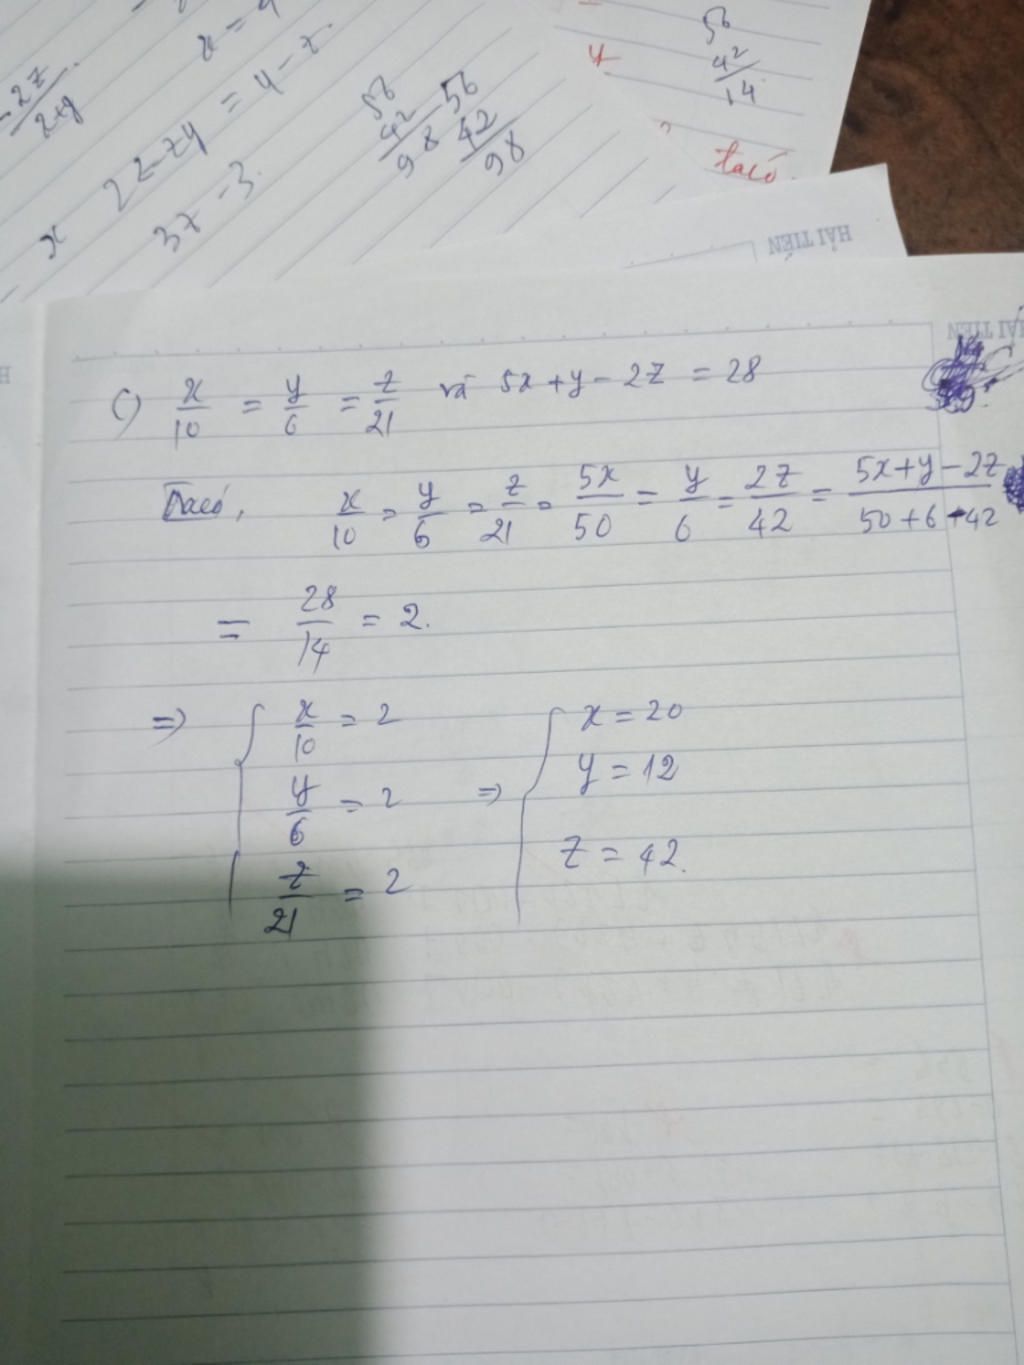 x = 4
- 2z / 2+y
x 2z - zy = 4 - z
3z - 3
56
42
98
56
42
98
56
42
14
y
ta có
HẢI TIẾN
HẢI TIẾN
c) x/10 = y/6 = z/21 và 5x + y - 2z = 28
Ta có, x/10 = y/6 = z/21 = 5x/50 = y/6 = 2z/42 = (5x + y - 2z)/(50 + 6 - 42)
= 28/14 = 2.
=> { x/10 = 2 => { x = 20
y/6 = 2 y = 12
z/21 = 2 z = 42.